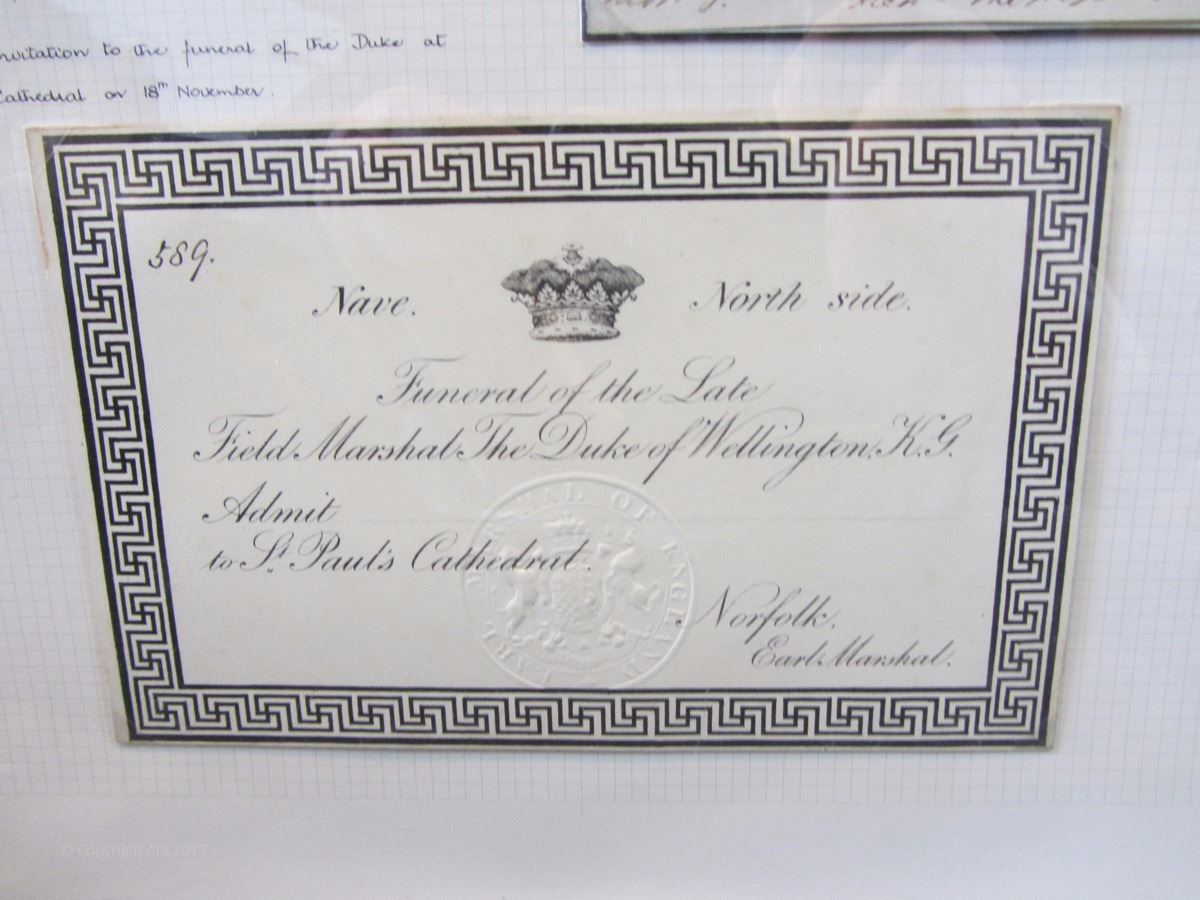 nvitation to the funeral of the Duke at
Cathedral on 18th November.
589.
Nave.
North side.
Funeral of the Late
Field Marshal The Duke of Wellington, K.G.
Admit
to St. Paul's Cathedral.
EARL MARSHAL OF ENGLAND
Norfolk.
Earl Marshal.
© Copyright AIA 2017